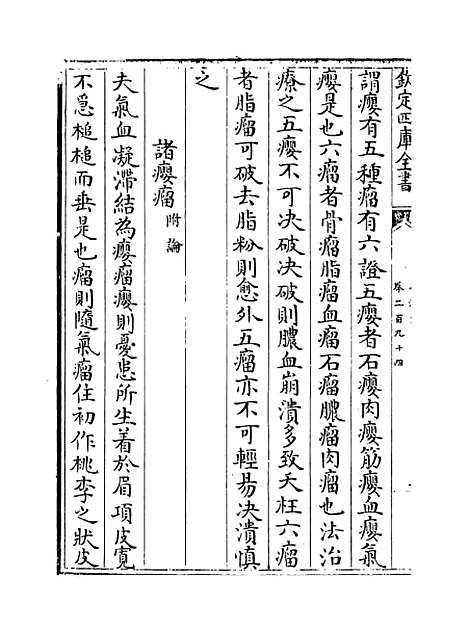 欽定四庫全書
卷二百九十四
謂癭有五種瘤有六證五癭者石癭肉癭筋癭血癭氣
癭是也六瘤者骨瘤脂瘤血瘤石瘤膿瘤肉瘤也法治
療之五癭不可决破决破則膿血崩潰多致夭枉六瘤
者脂瘤可破去脂粉則愈外五瘤亦不可輕易决潰慎
之
諸癭瘤附論
夫氣血凝滯結為癭瘤癭則憂恚所生着於眉項皮寛
不急槌槌而垂是也瘤則隨氣瘤住初作桃李之狀皮